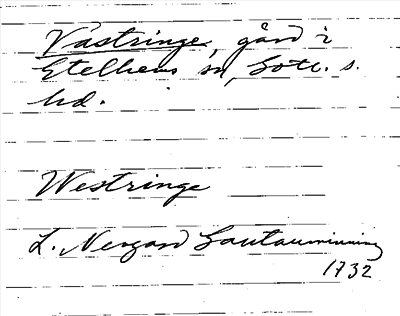 Västringe, gård i
Etelhems sn, Gotl. s.
hd.
Westringe
L. Nergard Gautauminning
1732